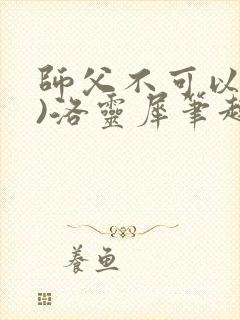 師父不可以
)洛靈犀筆趣
養魚